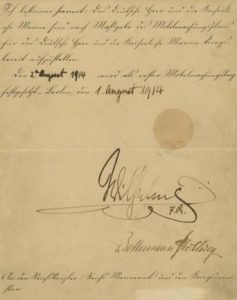 Ich bestimme hiermit: Das Deutsche Heer und die Kaiserliche
Marine sind nach Maßgabe des Mobilmachungsplans
für das Deutsche Heer und die Kaiserliche Marine kriegsbereit
aufzustellen.
Der 2. August 1914 wird als erster Mobilmachungstag
festgesetzt. Berlin, den 1. August 1914
Wilhelm
I.R.
Bethmann Hollweg
An den Reichskanzler (Reichs-Marineamt) und den Kriegsminister